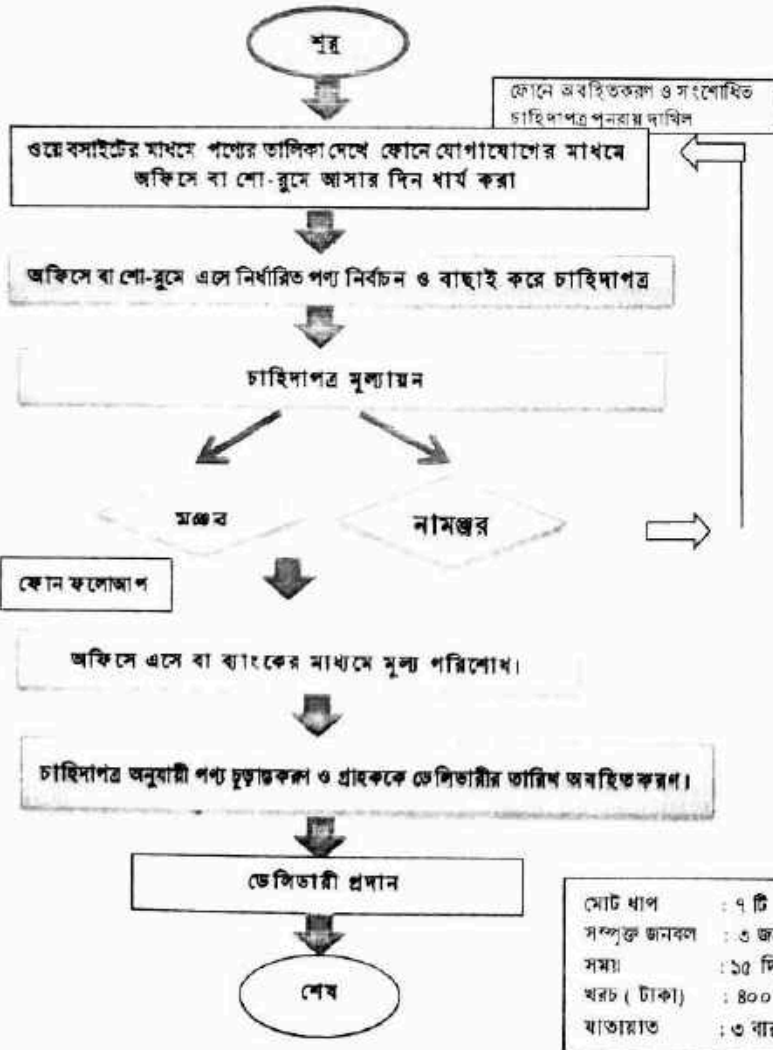 শুরু
ফোনে অবহিতকরণ ও সংশোধিত
চাহিদাপত্র পুনরায় দাখিল
ওয়েবসাইটের মাধমে পণ্যের তালিকা দেখে ফোনে যোগাযোগের মাধমে
অফিসে বা শো-রুমে আসার দিন ধার্য করা
অফিসে বা শো-রুমে এসে নির্ধারিত পণ্য নির্বাচন ও বাছাই করে চাহিদাপত্র
চাহিদাপত্র মূল্যায়ন
মঞ্জুর
নামঞ্জুর
ফোন ফলোআপ
অফিসে এসে বা ব্যাংকের মাধ্যমে মূল্য পরিশোধ।
চাহিদাপত্র অনুযায়ী পণ্য চূড়ান্তকরণ ও গ্রাহককে ডেলিভারীর তারিখ অবহিতকরণ।
ডেলিভারী প্রদান
শেষ
মোট ধাপ : ৭ টি
সম্পৃক্ত জনবল : ৩
সময় : ১৫
খরচ ( টাকা) : ৪০০
যাতায়াত : ৩ বার